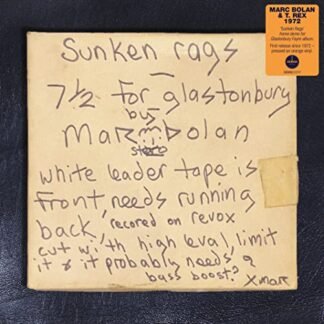 MARC BOLAN
& T. REX
1972
'Sunken Rags'
home demo for
Glastonbury Fayre album.
First release since 1972 –
pressed on orange vinyl.
Sunken rags
7½ for glastonbury
by
Marc Bolan
stereo
white leader tape is
front needs running
back, recored on revox
cut with high leval, limit
it & it probably needs a
bass boost? X marc